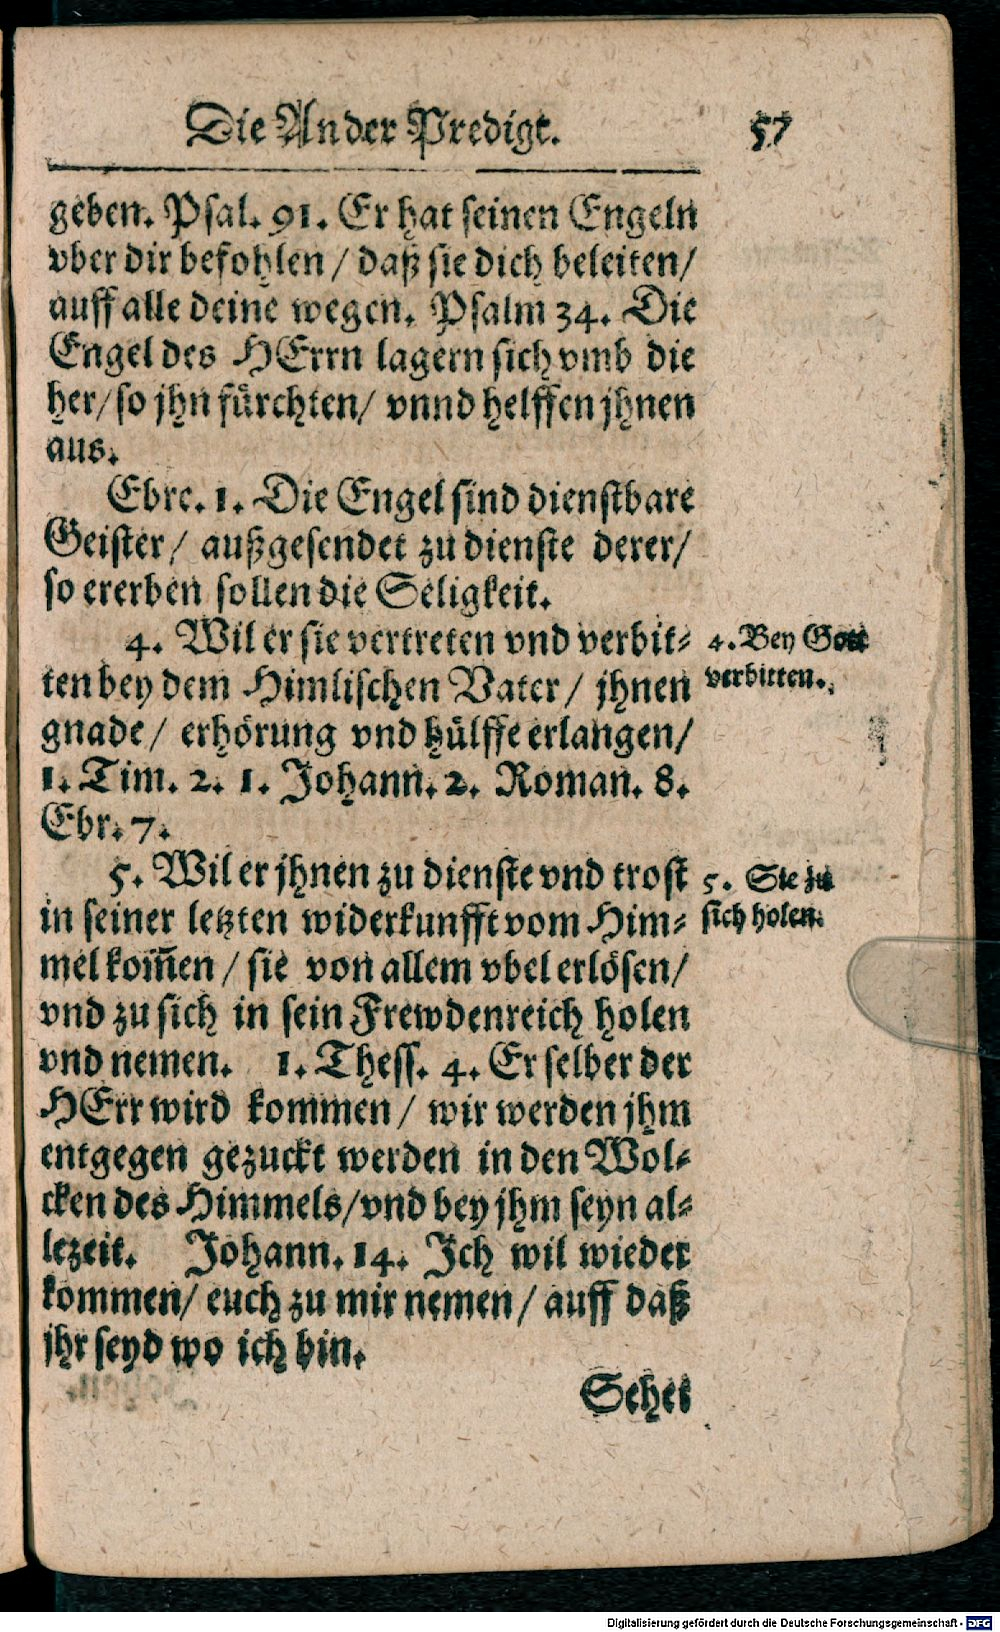 Die Ander Predigt. 57
geben. Psal. 91. Er hat seinen Engeln
vber dir befohlen / daß sie dich beleiten /
auff alle deine wegen. Psalm 34. Die
Engel des HErrn lagern sich vmb die
her / so jhn fürchten / vnnd helffen jhnen
aus.
Ebre. 1. Die Engel sind dienstbare
Geister / außgesendet zu dienste derer /
so ererben sollen die Seligkeit.
4. Wil er sie vertreten vnd verbit-
ten bey dem Himlischen Vater / jhnen
gnade / erhörung vnd hülffe erlangen /
1. Tim. 2. 1. Johann. 2. Roman. 8.
Ebr. 7.
4. Bey Gott
verbitten.
5. Wil er jhnen zu dienste vnd trost
in seiner letzten widerkunfft vom Him-
mel kom̄en / sie von allem vbel erlösen /
vnd zu sich in sein Frewdenreich holen
vnd nemen. 1. Thess. 4. Er selber der
HErr wird kommen / wir werden jhm
entgegen gezuckt werden in den Wol-
cken des Himmels / vnd bey jhm seyn al-
lezeit. Johann. 14. Jch wil wieder
kommen / euch zu mir nemen / auff daß
jhr seyd wo ich bin.
5. Sie zu
sich holen.
Sehet
Digitalisierung gefördert durch die Deutsche Forschungsgemeinschaft - DFG